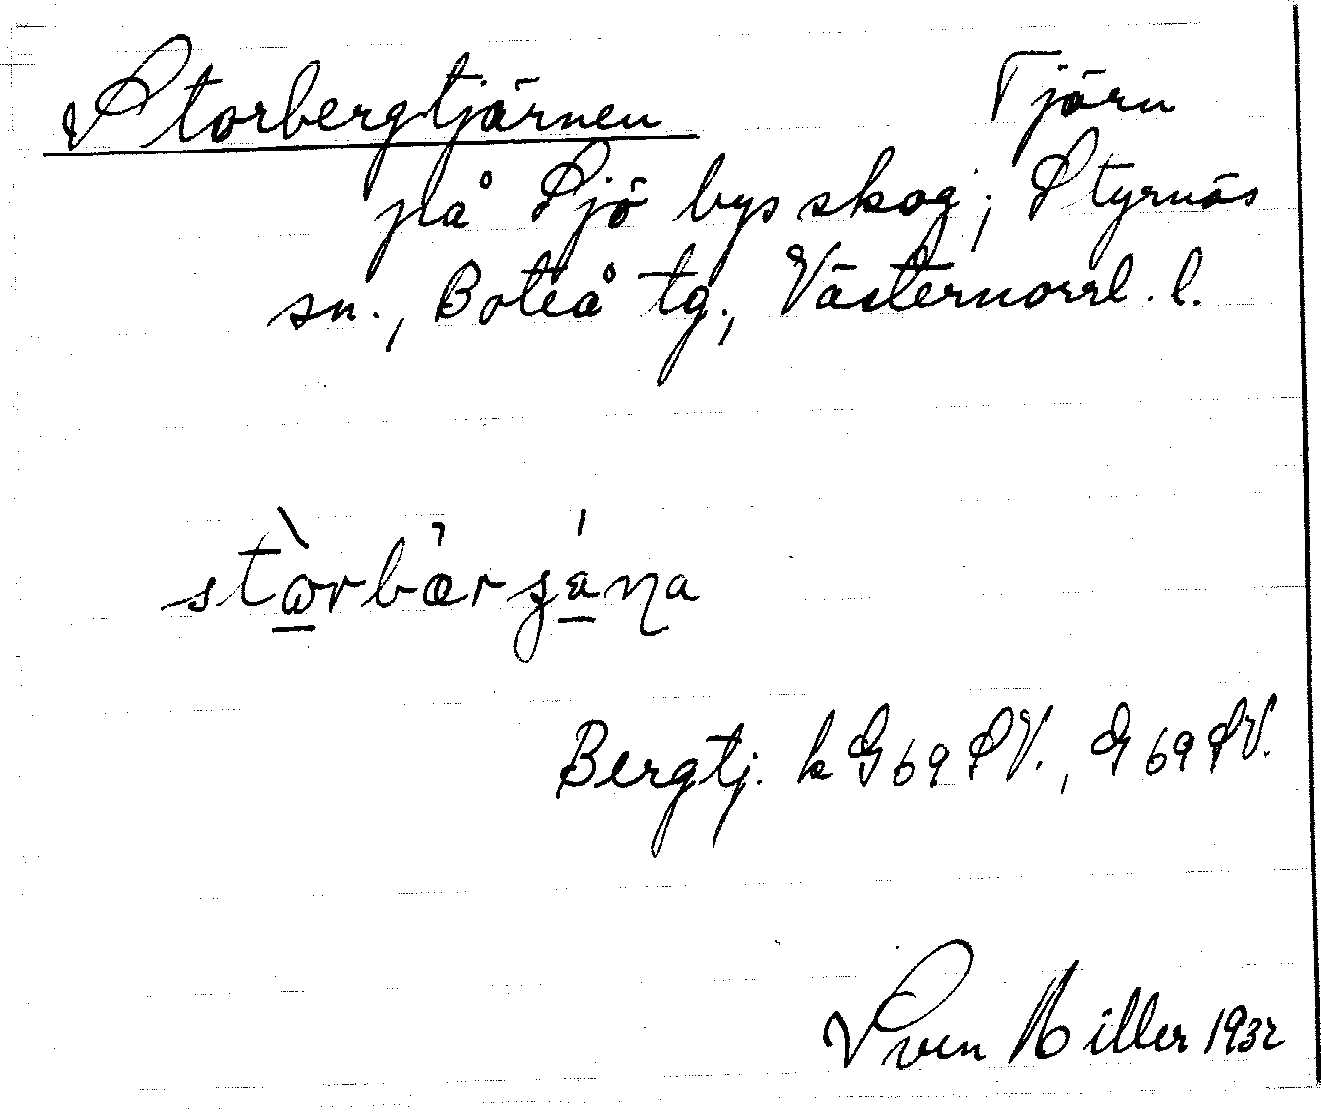 Storbergtjärnen Tjärn
på Sjö bys skog, Styrnäs
sn., Boteå tg., Västernorrl. l.
Bergtj. k G 69 SV., G 69 SV.
Sven Hiller 1932